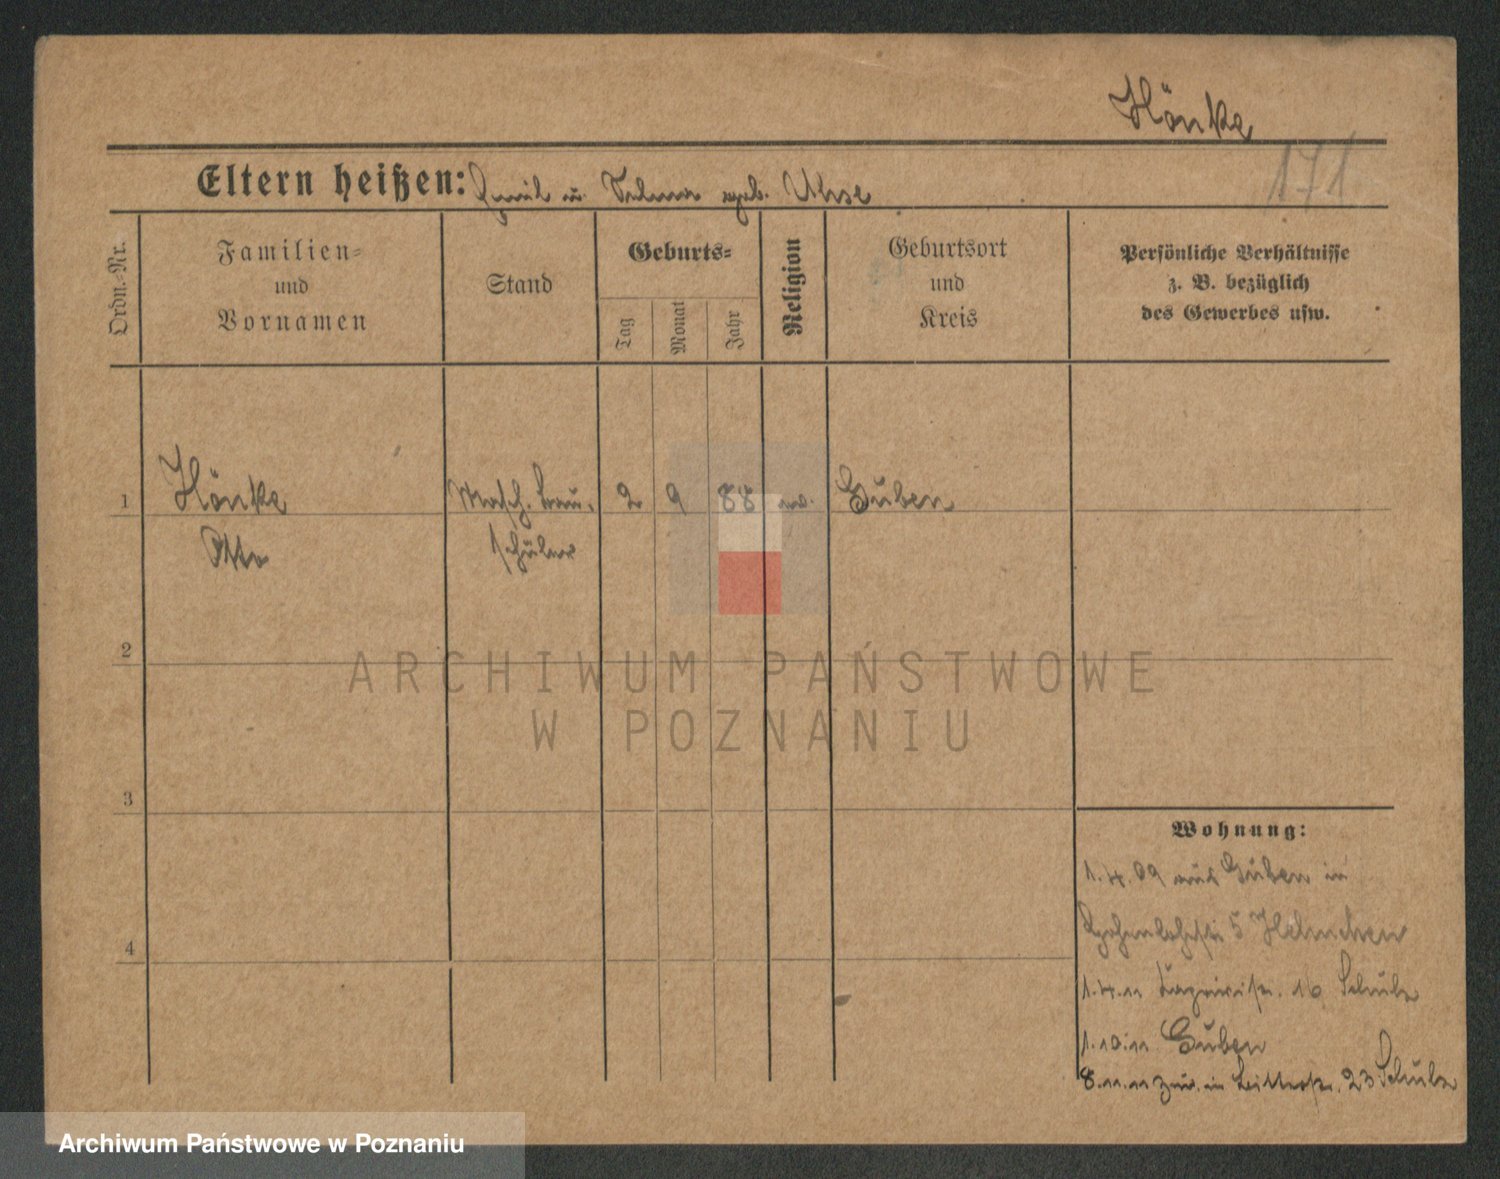 Hönke
171
Eltern heißen: Emil u. Selma geb. Uhse
Ordn.-Nr.
Familien-
und
Vornamen
Stand
Geburts-
Tag
Monat
Jahr
Religion
Geburtsort
und
Kreis
Persönliche Verhältnisse
z. B. bezüglich
des Gewerbes usw.
1
Hönke
Otto
Masch. bau-
schüler
2
9
88
ev.
Guben
2
3
4
Wohnung:
1.4.09 aus Guben in
5
1.4.11 16 Schulz
1.10.11 Guben
8.11.11 zur. in 23 Schulz
ARCHIWUM PAŃSTWOWE
W POZNANIU
Archiwum Państwowe w Poznaniu